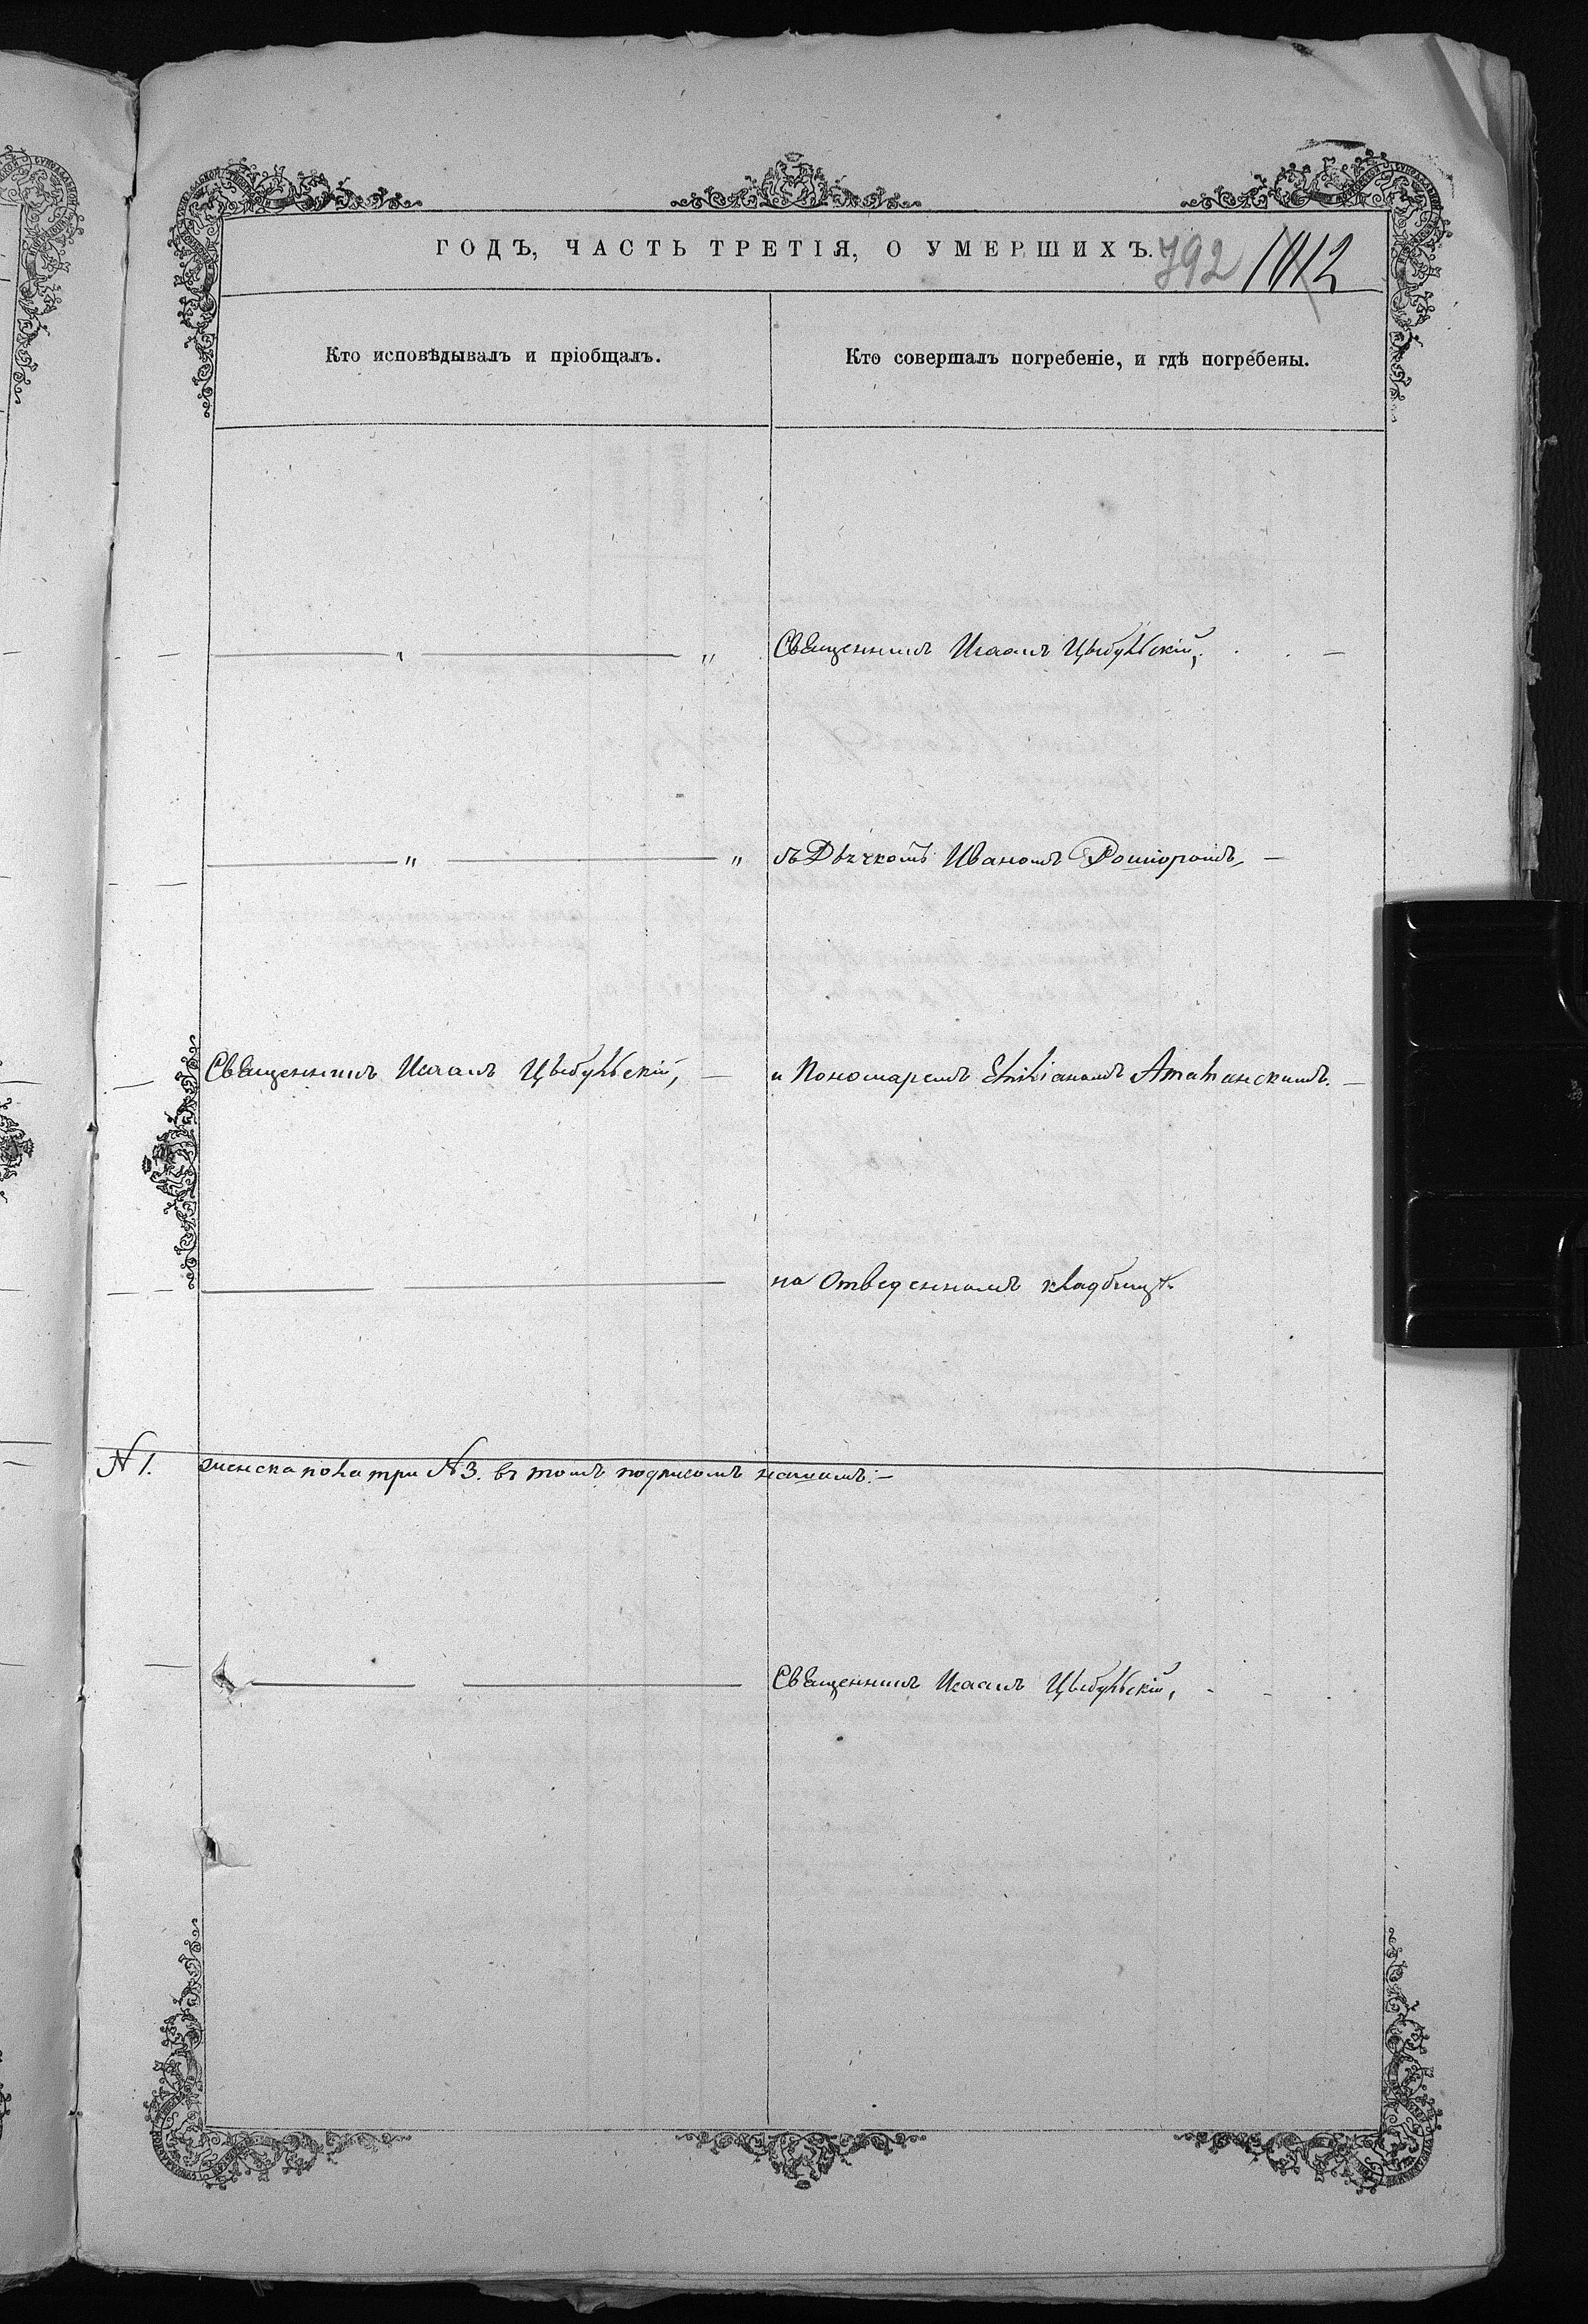 ГОДЪ, ЧАСТЬ ТРЕТІЯ, О УМЕРШИХЪ. 792
Кто исповѣдывалъ и пріобщалъ.
Кто совершалъ погребеніе, и гдѣ погребены.
Священникъ Исаакъ Цыбульскій,
съ Дьячкомъ Иваномъ
Священникъ Исаакъ Цыбульскій,
и Пономаремъ Атаманскимъ.
на отведенномъ кладбищѣ
N 1. женска пола три N 3. въ томъ подписомъ нашимъ:
Священникъ Исаакъ Цыбульскій,